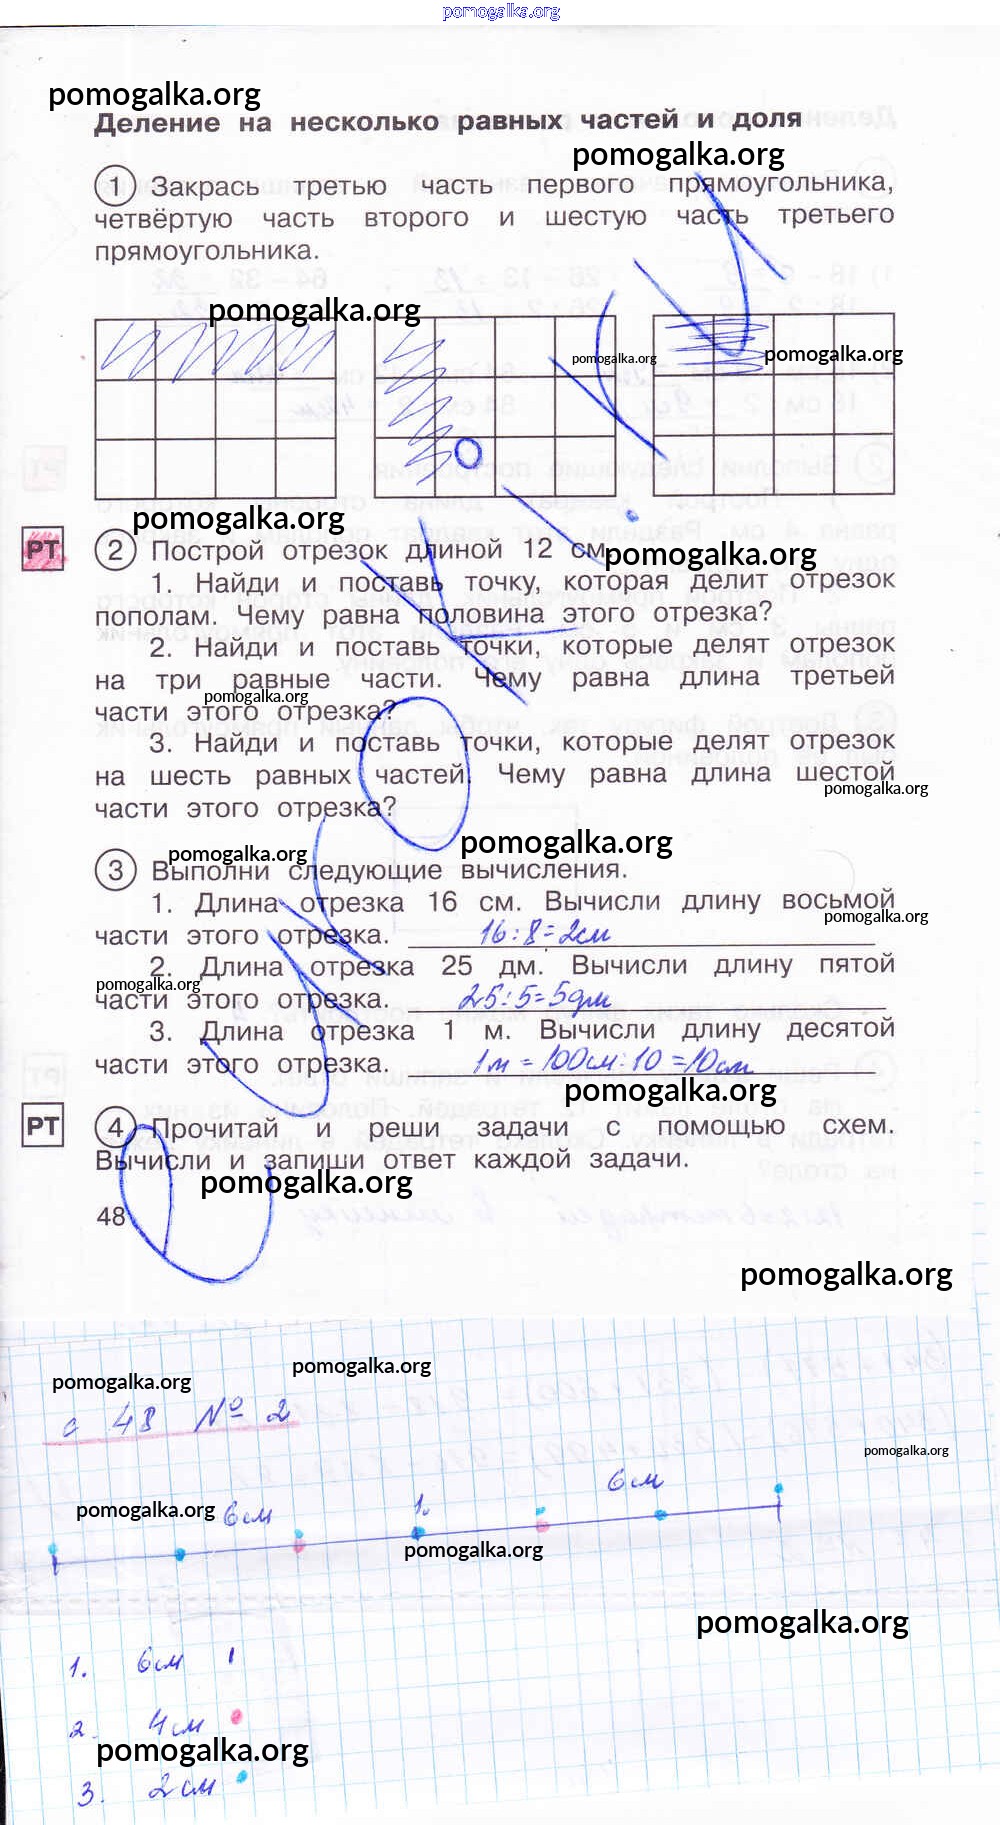 pomogalka.org
pomogalka.org
Деление на несколько равных частей и доля
pomogalka.org
1 Закрась третью часть первого прямоугольника,
четвёртую часть второго и шестую часть третьего
прямоугольника.
pomogalka.org
pomogalka.org
pomogalka.org
pomogalka.org
РТ 2 Построй отрезок длиной 12 см.
pomogalka.org
1. Найди и поставь точку, которая делит отрезок
пополам. Чему равна половина этого отрезка?
2. Найди и поставь точки, которые делят отрезок
на три равные части. Чему равна длина третьей
pomogalka.org
части этого отрезка?
3. Найди и поставь точки, которые делят отрезок
на шесть равных частей. Чему равна длина шестой
pomogalka.org
части этого отрезка?
pomogalka.org
pomogalka.org
3 Выполни следующие вычисления.
1. Длина отрезка 16 см. Вычисли длину восьмой
pomogalka.org
части этого отрезка. 16:8=2см
2. Длина отрезка 25 дм. Вычисли длину пятой
pomogalka.org
части этого отрезка. 25:5=5дм
3. Длина отрезка 1 м. Вычисли длину десятой
части этого отрезка. 1м = 100см:10=10см
pomogalka.org
РТ 4 Прочитай и реши задачи с помощью схем.
Вычисли и запиши ответ каждой задачи.
pomogalka.org
48
pomogalka.org
pomogalka.org
pomogalka.org
с 48 № 2
pomogalka.org
6см
pomogalka.org
6см 1.
pomogalka.org
pomogalka.org
1. 6см
2. 4см
pomogalka.org
3. 2см